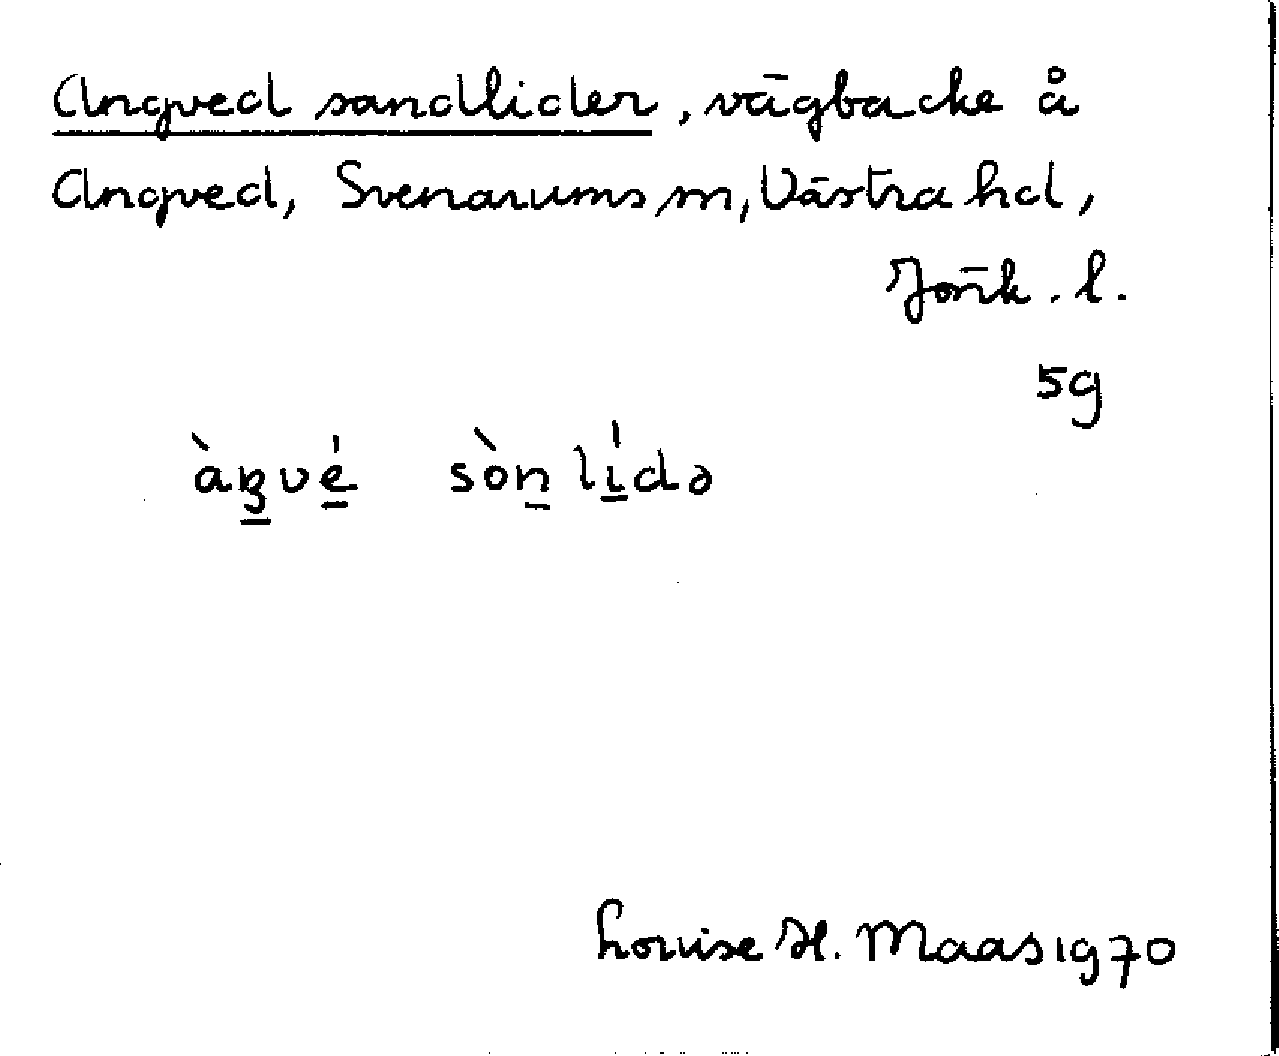 Angved sandlider, vägbacke å
Angved, Svenarums sn, Västra hd,
Jönk. l.
5g
àŋvé sòn lídə
Louise H. Maas 1970